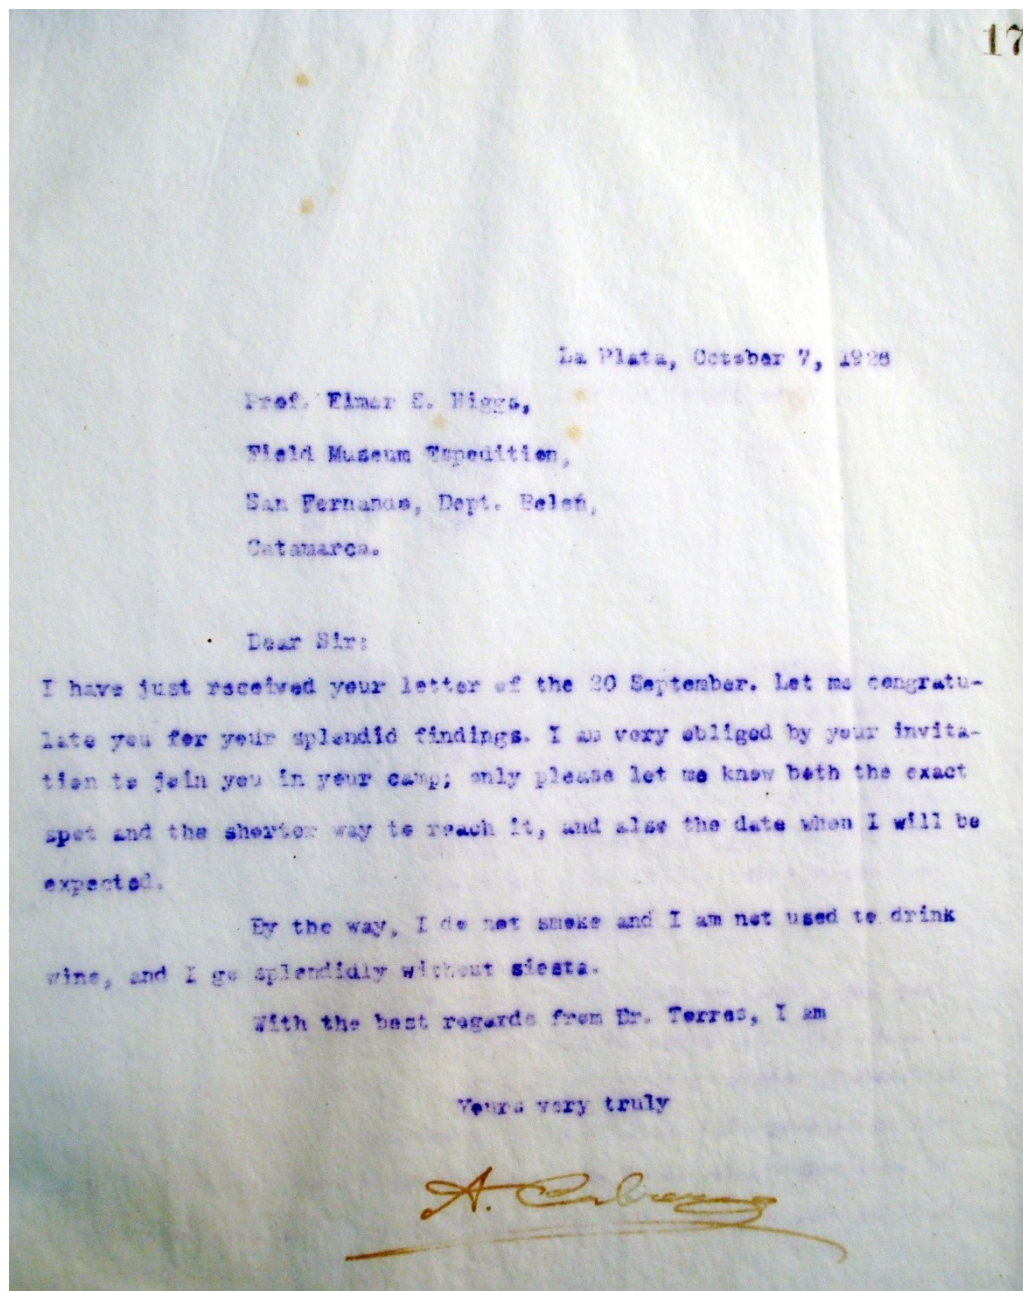 17
La Plata, October 7, 1926
Prof. Elmer S. Riggs,
Field Museum Expedition,
San Fernando, Dept. Belén,
Catamarca.
Dear Sir:
I have just received your letter of the 20 September. Let me congratu-
late you for your splendid findings. I am very obliged by your invita-
tion to join you in your camp; only please let me know both the exact
spot and the shorter way to reach it, and also the date when I will be
expected.
By the way, I do not smoke and I am not used to drink
wine, and I go splendidly without siesta.
With the best regards from Dr. Torres, I am
Yours very truly
A. Cabrera